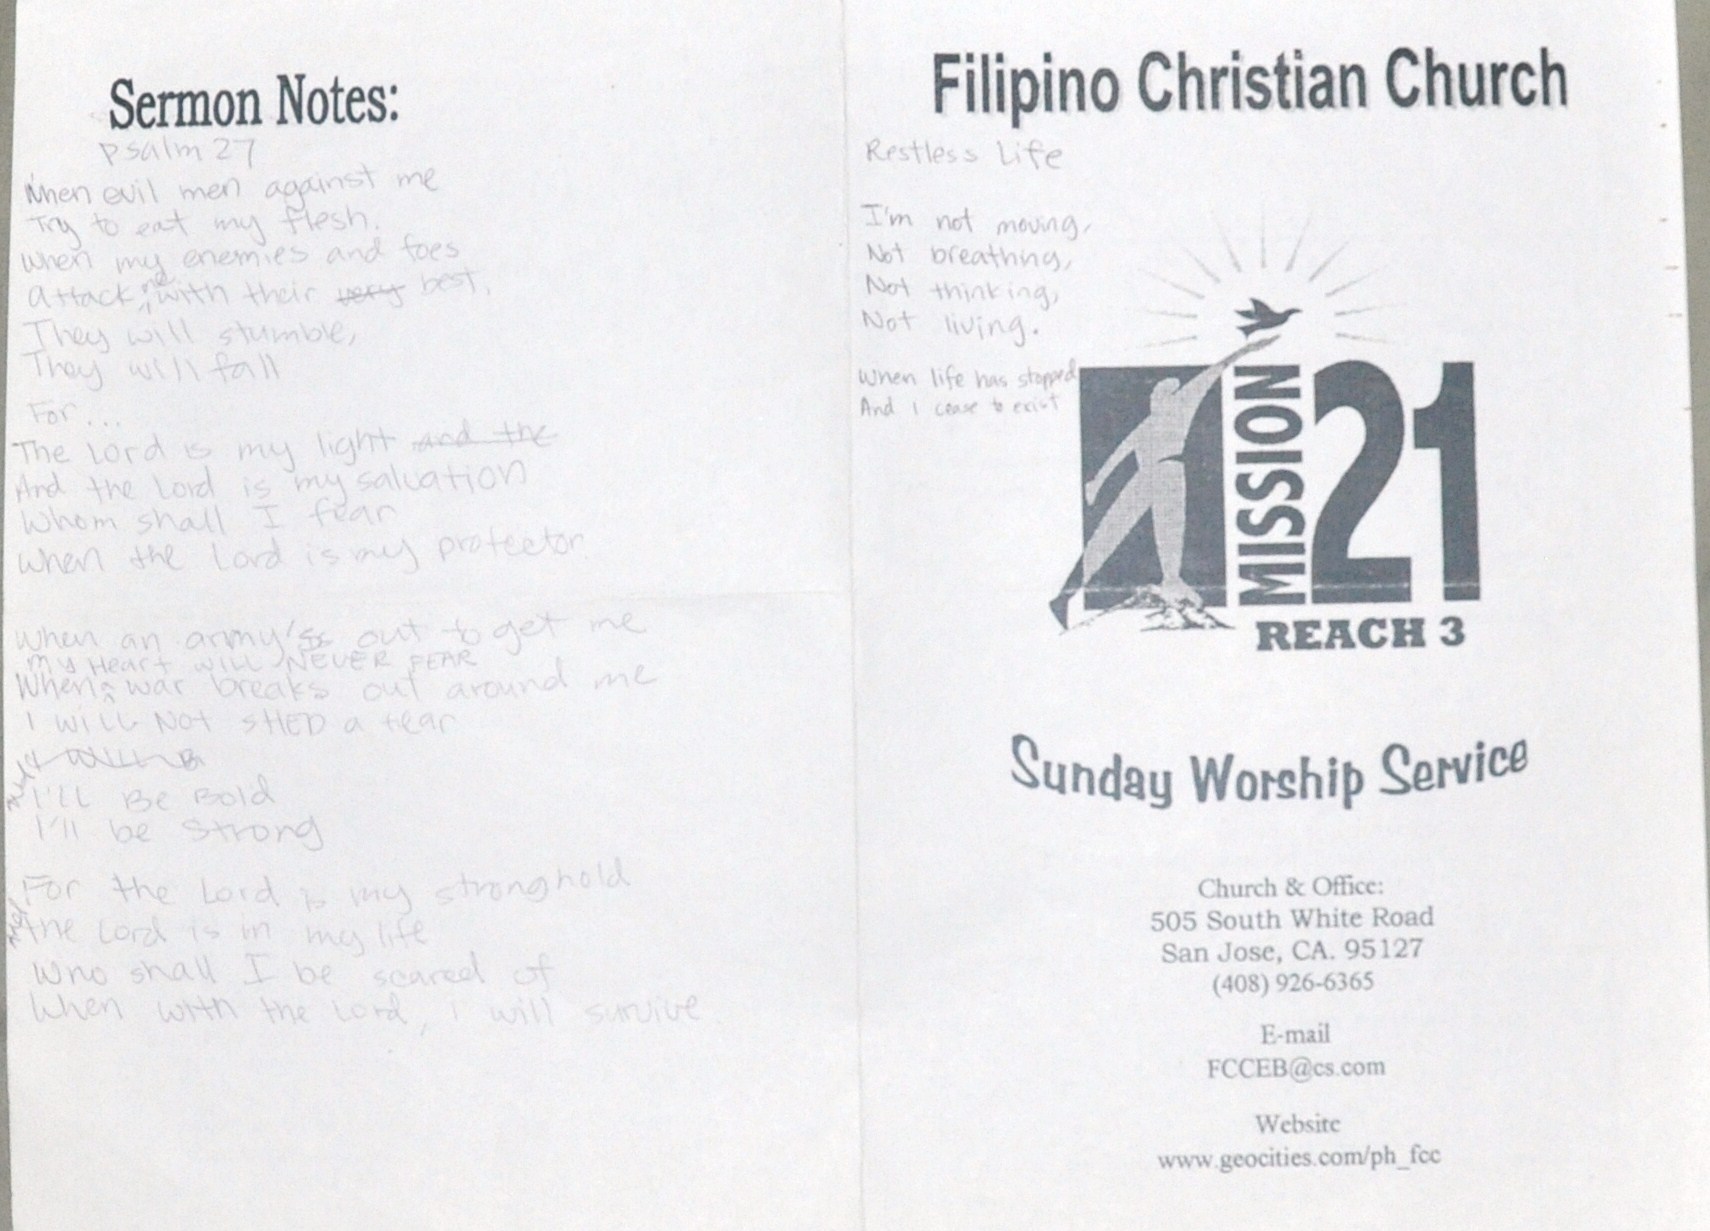 Sermon Notes:
Psalm 27
When evil men against me
Try to eat my flesh.
When my enemies and foes
attack me with their very best.
They will stumble,
They will fall
For...
The Lord is my light and the
And the Lord is my salvation
Whom shall I fear
When the Lord is my protector.
When an army's out to get me
My Heart WILL NEVER FEAR
When war breaks out around me
I WILL NOT SHED a tear
I'LL Be Bold
I'll be strong
For the Lord is my stronghold
the Lord is in my life
Who shall I be scared of
When with the Lord, I will survive.
Filipino Christian Church
Restless Life
I'm not moving,
Not breathing,
Not thinking,
Not living.
When life has stopped
And I cease to exist
MISSION 21
REACH 3
Sunday Worship Service
Church & Office:
505 South White Road
San Jose, CA. 95127
(408) 926-6365
E-mail
FCCEB@cs.com
Website
www.geocities.com/ph_fcc